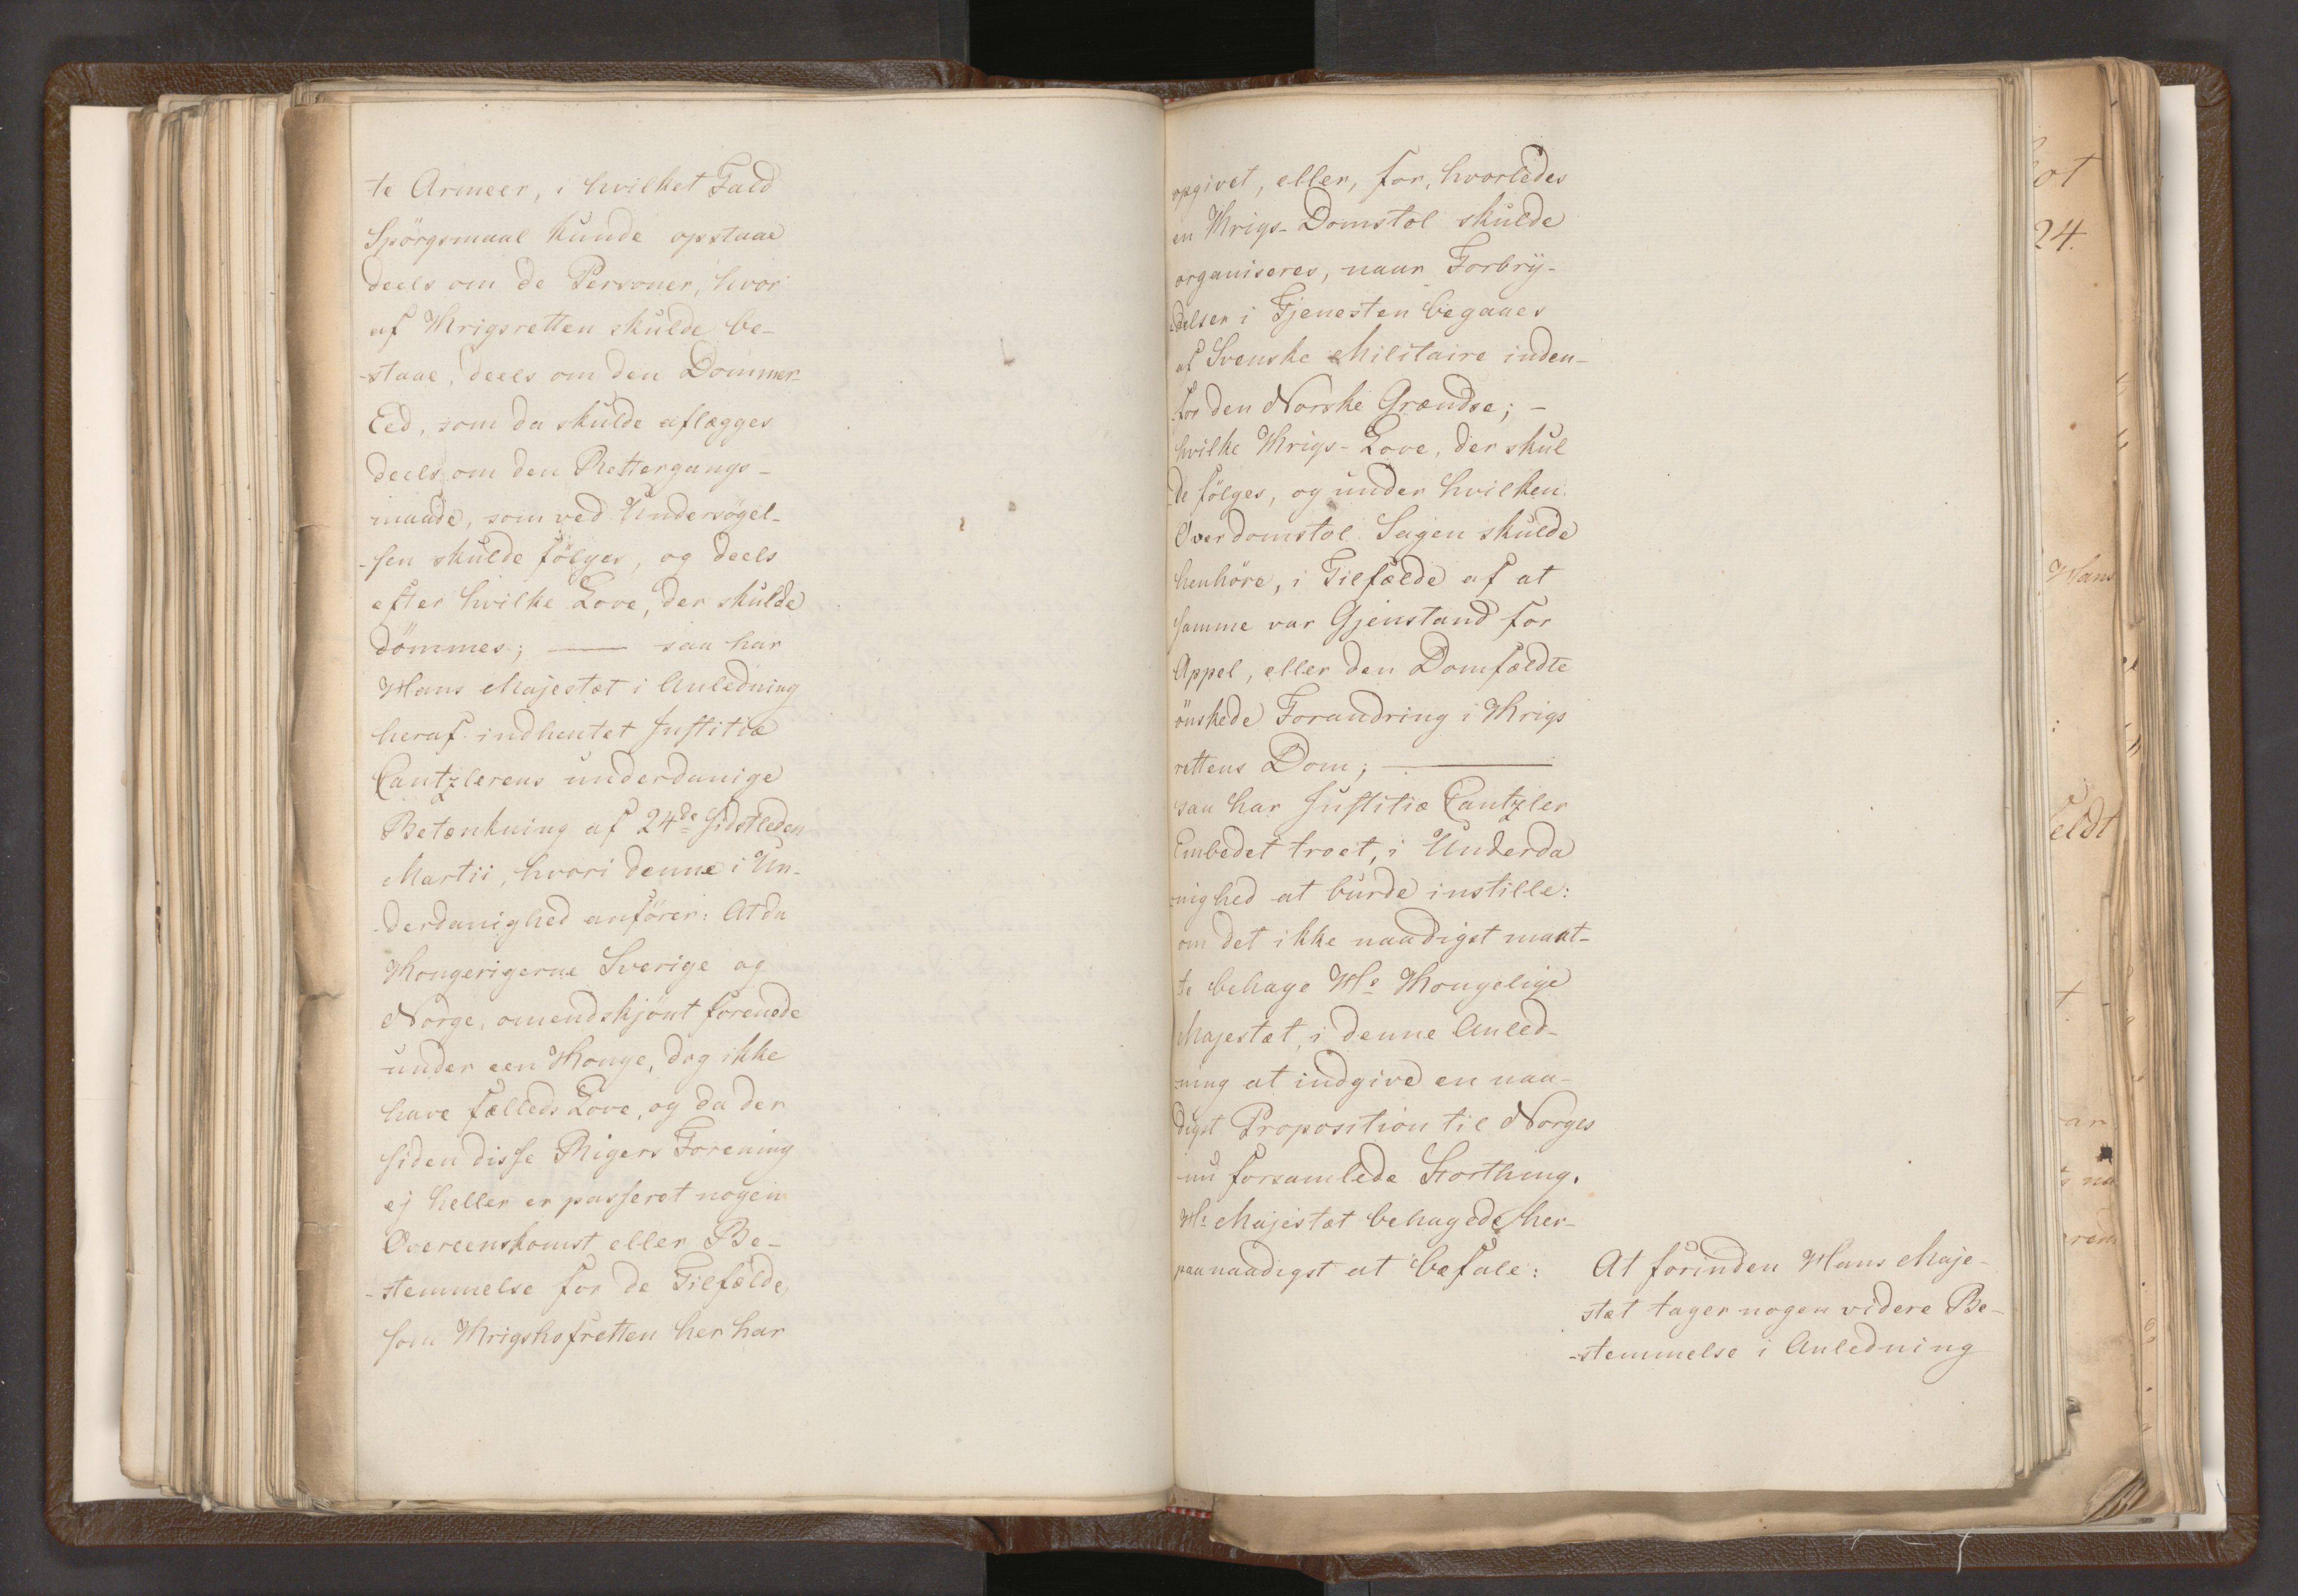 te Armeer, i hvilket Fald
Spörgsmaal kunde opstaae
deels om de Personer, hvor
af Krigsretten skulde be-
-staae, deels om den Dommer-
Eed, som da skulde aflægges
deels om den Rettergangs-
maade, som ved Undersögel-
-sen skulde fölges, og deels
efter hvilke Love, der skulde
dömmes; — saa har
Hans Majestæt i Anledning
heraf indhentet Justitiæ
Cantzlerens underdanige
Betænkning af 24de sidstleden
Martii, hvori denne i Un-
-derdanighed anförer: At da
Kongerigerne Sverige og
Norge, omendskjönt forenede
under een Konge, dog ikke
have fælleds Love, og da der
siden disse Rigers Forening
ej heller er passeret nogen
Overeenskomst eller Be-
-stemmelse for de Tilfælde,
som Krigshofretten her har
opgivet, eller, for, hvorledes
en Krigs-Domstol skulde
organiseres, naar Forbry-
-delser i Tjenesten begaaes
af Svenske Militaire inden-
for den Norske Grændse; -
hvilke Krigs-Love, der skul
de fölges, og under hvilken
Overdomstol Sagen skulde
henhöre, i Tilfælde af at
samme var Gjenstand for
Appel, eller den Domfældte
önskede Forandring i Krigs
rettens Dom; —
saa har Justitiæ Cantzler
Embedet troet, i Underda
-nighed at burde instille:
om det ikke naadigst maat-
te behage Hs Kongelige
Majestæt, i denne Anled-
-ning at indgive en naa-
digst Proposition til Norges
nu forsamlede Storthing.
Hs Majestæt behagede her-
paa naadigst at befale:
At forinden Hans Maje-
stæt tager nogen videre Be-
-stemmelse i Anledning
24.
Hans